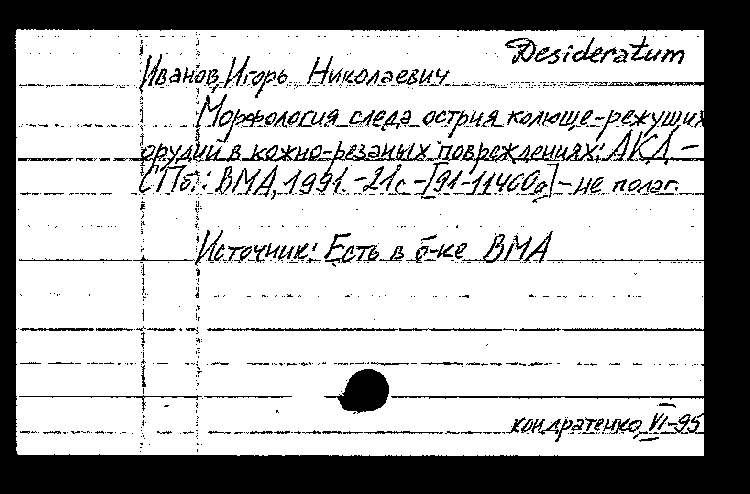 Desideratum
Иванов, Игорь Николаевич
Морфология следа острия колюще-режущих
орудий в кожно-резаных повреждениях: АКД -
СПб.: ВМА, 1991. - 21с - [91-11400а] - не полаг.
Источник: Есть в б-ке ВМА
кондратенко, VI-95